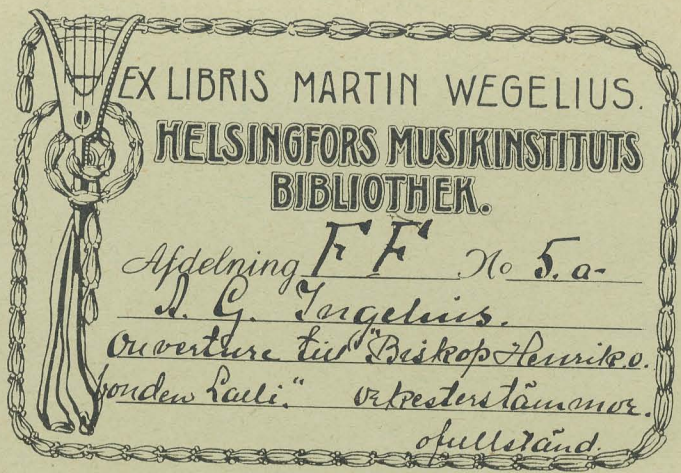 EX LIBRIS MARTIN WEGELIUS.
HELSINGFORS MUSIKINSTITUTS
BIBLIOTHEK.
Afdelning FF No 5.a-
A. G. Ingelius.
Ouverture till "Biskop Henrik o.
bonden Lalli." orkesterstämmor.
ofullständ.